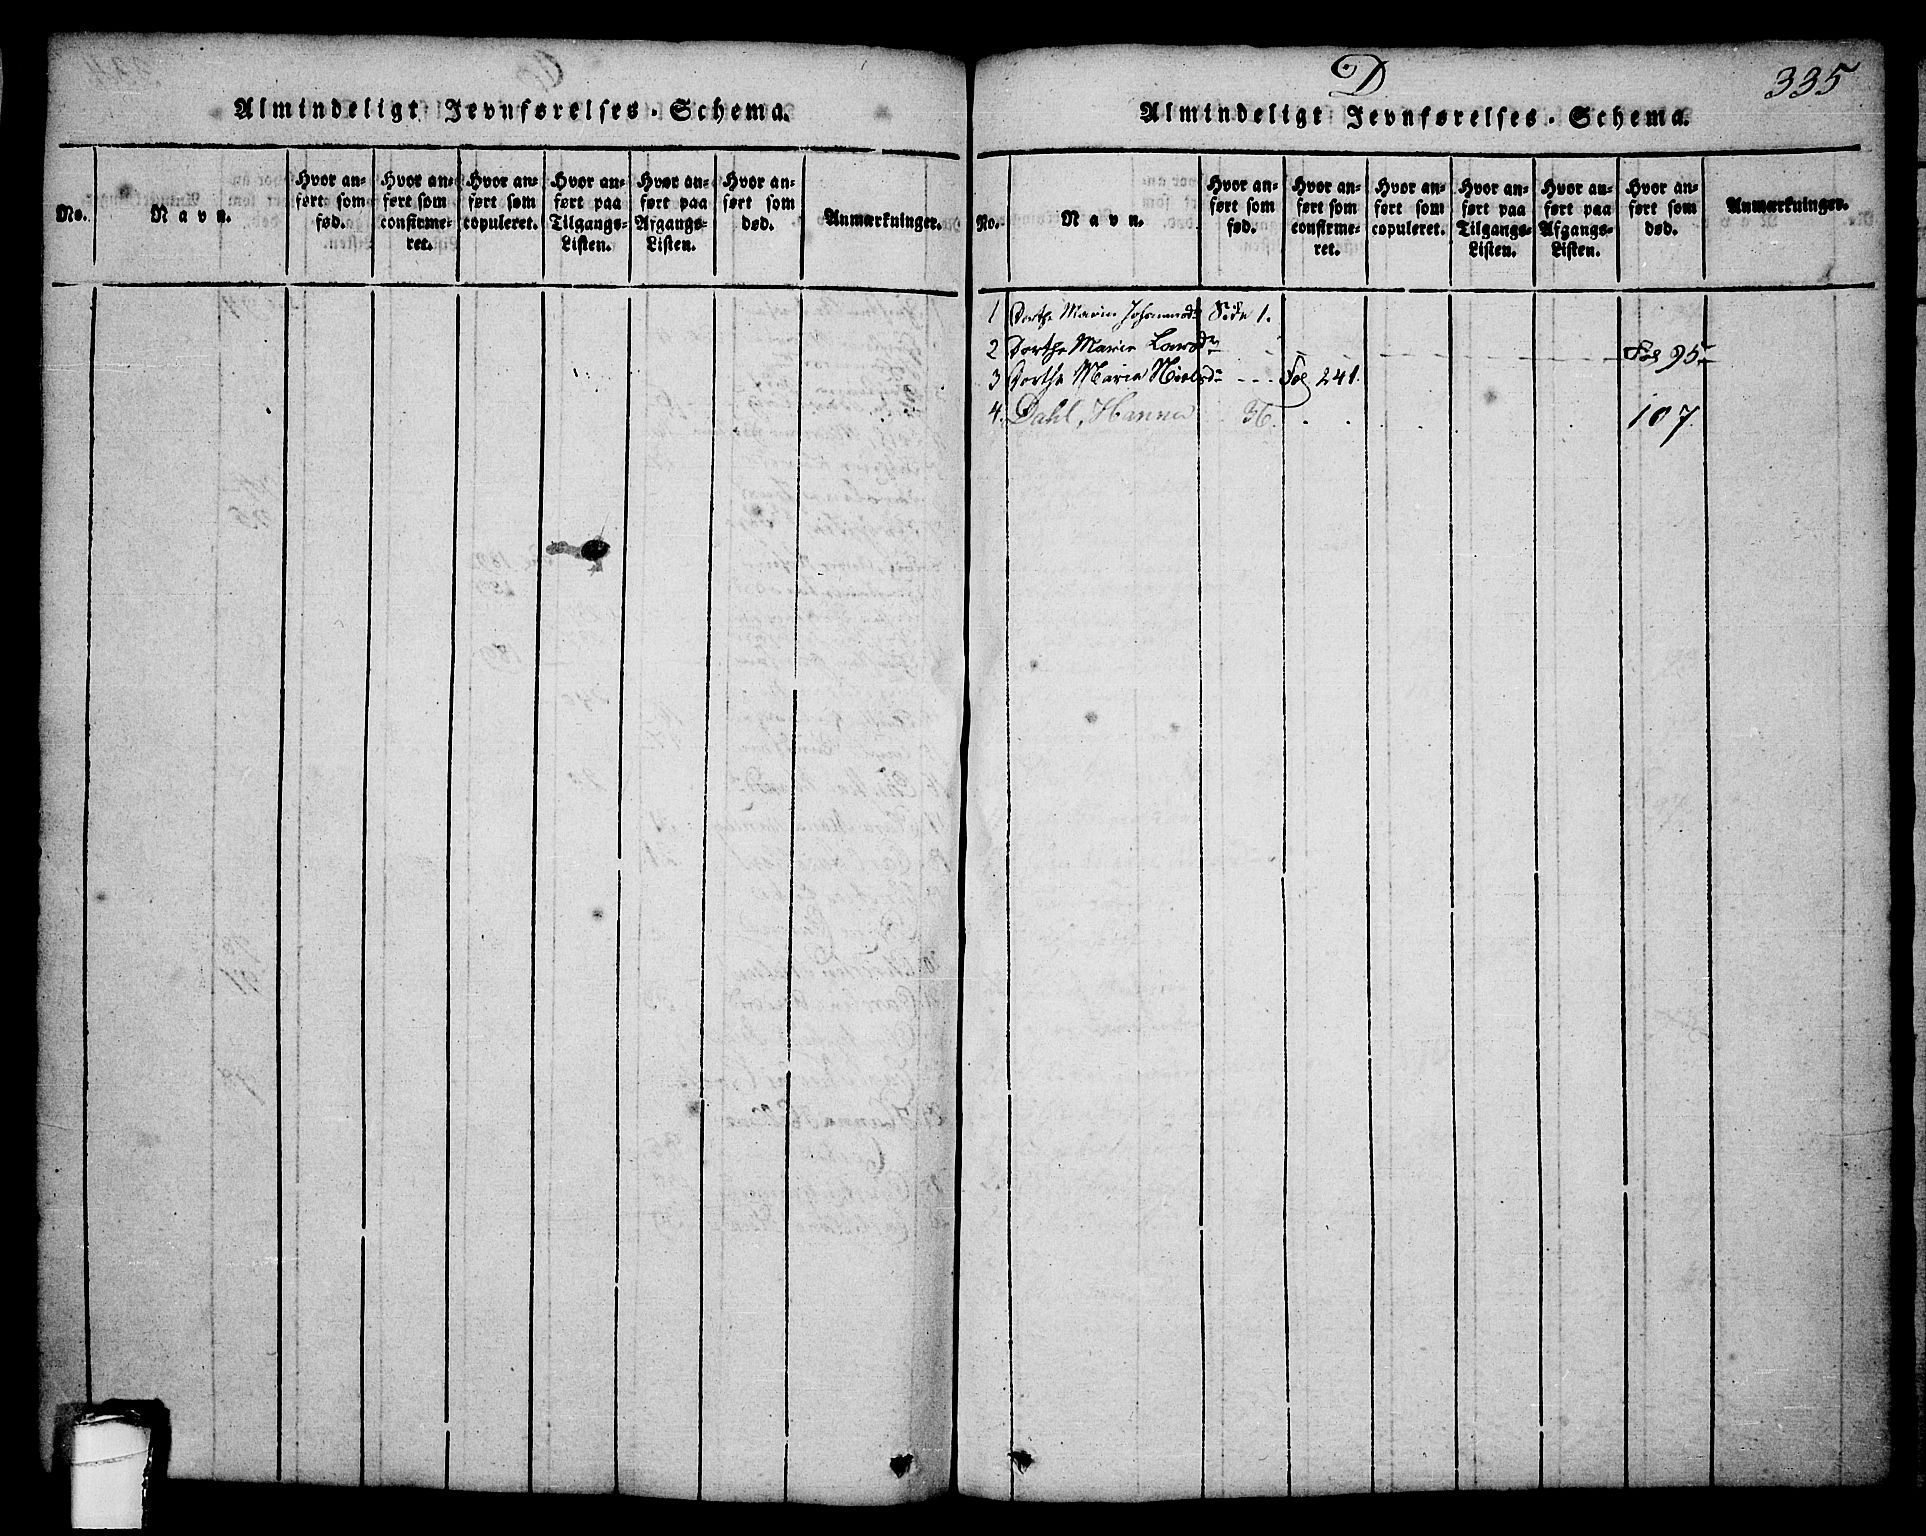 Almindeligt Jevnførelses-Schema.
No.
Navn.
Hvor anført som fød.
Hvor anført som confirmeret.
Hvor anført som copuleret.
Hvor anført paa Tilgangs-Listen.
Hvor anført paa Afgangs-Listen.
Hvor anført som død.
Anmærkninger.
D
335
Almindeligt Jevnførelses-Schema.
No.
Navn.
Hvor anført som fød.
Hvor anført som confirmeret.
Hvor anført som copuleret.
Hvor anført paa Tilgangs-Listen.
Hvor anført paa Afgangs-Listen.
Hvor anført som død.
Anmærkninger.
1 Dorthe Marie Side 1.
2 Dorthe Marie Larsdr Fol 95
3 Dorthe Marie Nielsdr - - - Fol 241.
4. Dahl, Hanne 36. 107